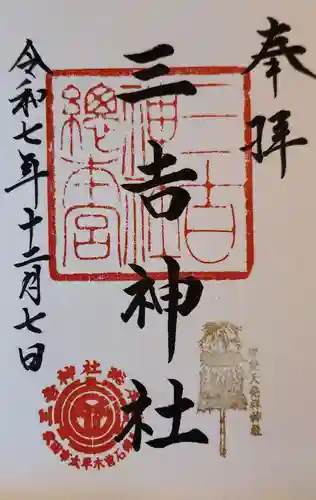 奉拝
三吉神社
令和七年十二月七日
三吉神社
總本宮